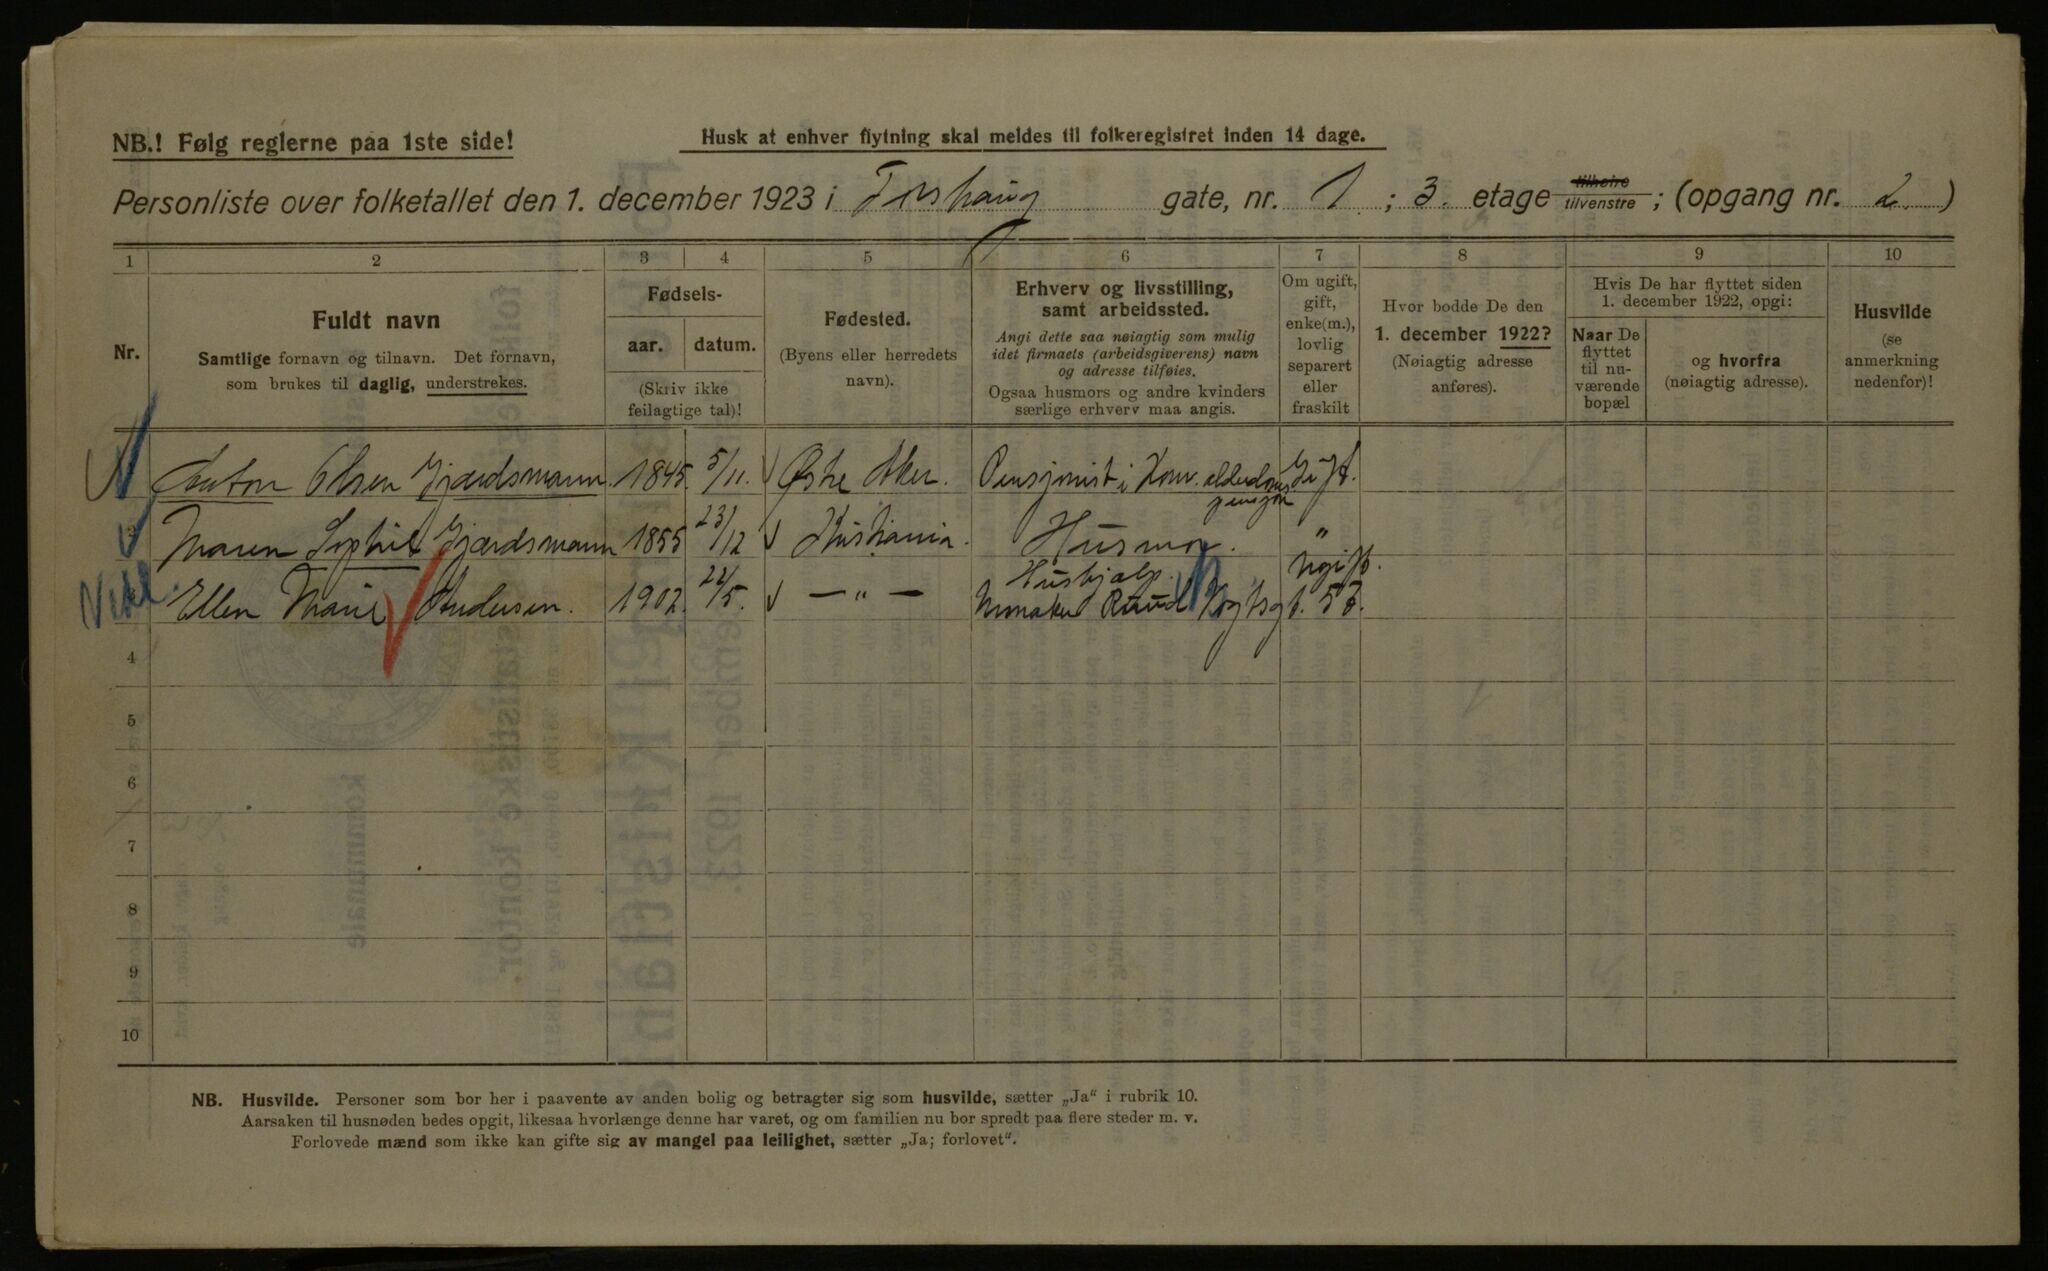 NB.! Følg reglerne paa 1ste side!
Husk at enhver flytning skal meldes til folkeregistret inden 14 dage.
Personliste over folketallet den 1. december 1923 i Torshaug gate, nr. 1 ; 3. etage tilhøire tilvenstre ; (opgang nr. 2. )
1 2 3 4 5 6 7 8 9 10
Nr.
Fuldt navn
Samtlige fornavn og tilnavn. Det fornavn,
som brukes til daglig, understrekes.
Fødsels-
aar. datum.
(Skriv ikke
feilagtige tal)!
Fødested.
(Byens eller herredets
navn).
Erhverv og livsstilling,
samt arbeidssted.
Angi dette saa nøiagtig som mulig
idet firmaets (arbeidsgiverens) navn
og adresse tilføies.
Ogsaa husmors og andre kvinders
særlige erhverv maa angis.
Om ugift,
gift,
enke(m.),
lovlig
separert
eller
fraskilt
Hvor bodde De den
1. december 1922?
(Nøiagtig adresse
anføres).
Hvis De har flyttet siden
1. december 1922, opgi:
Naar De
flyttet
til nu-
værende
bopæl
og hvorfra
(nøiagtig adresse).
Husvilde
(se
anmerkning
nedenfor)!
Anton Olsen Gjærdsmann. 1845. 5/11. Østre Aker. Pensjonist i Kom. alderdoms Gift.
pensjon
Maren Sophie Gjærdsmann 1855 23/12 Kristiania. Husmor. "
Hushjælp. Ugift.
Ellen Marie Andersen. 1902. 22/5. — " — Ruud Vogtsgt. 57.
4
5
6
7
8
9
10
NB. Husvilde. Personer som bor her i paavente av anden bolig og betragter sig som husvilde, sætter „Ja“ i rubrik 10.
Aarsaken til husnøden bedes opgit, likesaa hvorlænge denne har varet, og om familien nu bor spredt paa flere steder m. v.
Forlovede mænd som ikke kan gifte sig av mangel paa leilighet, sætter „Ja; forlovet“.